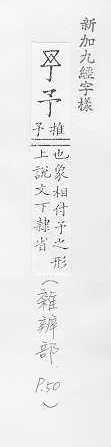 新加九經字樣
予
推予
也象相付予之形
上說文下隸省
(雜辨部 P.50)